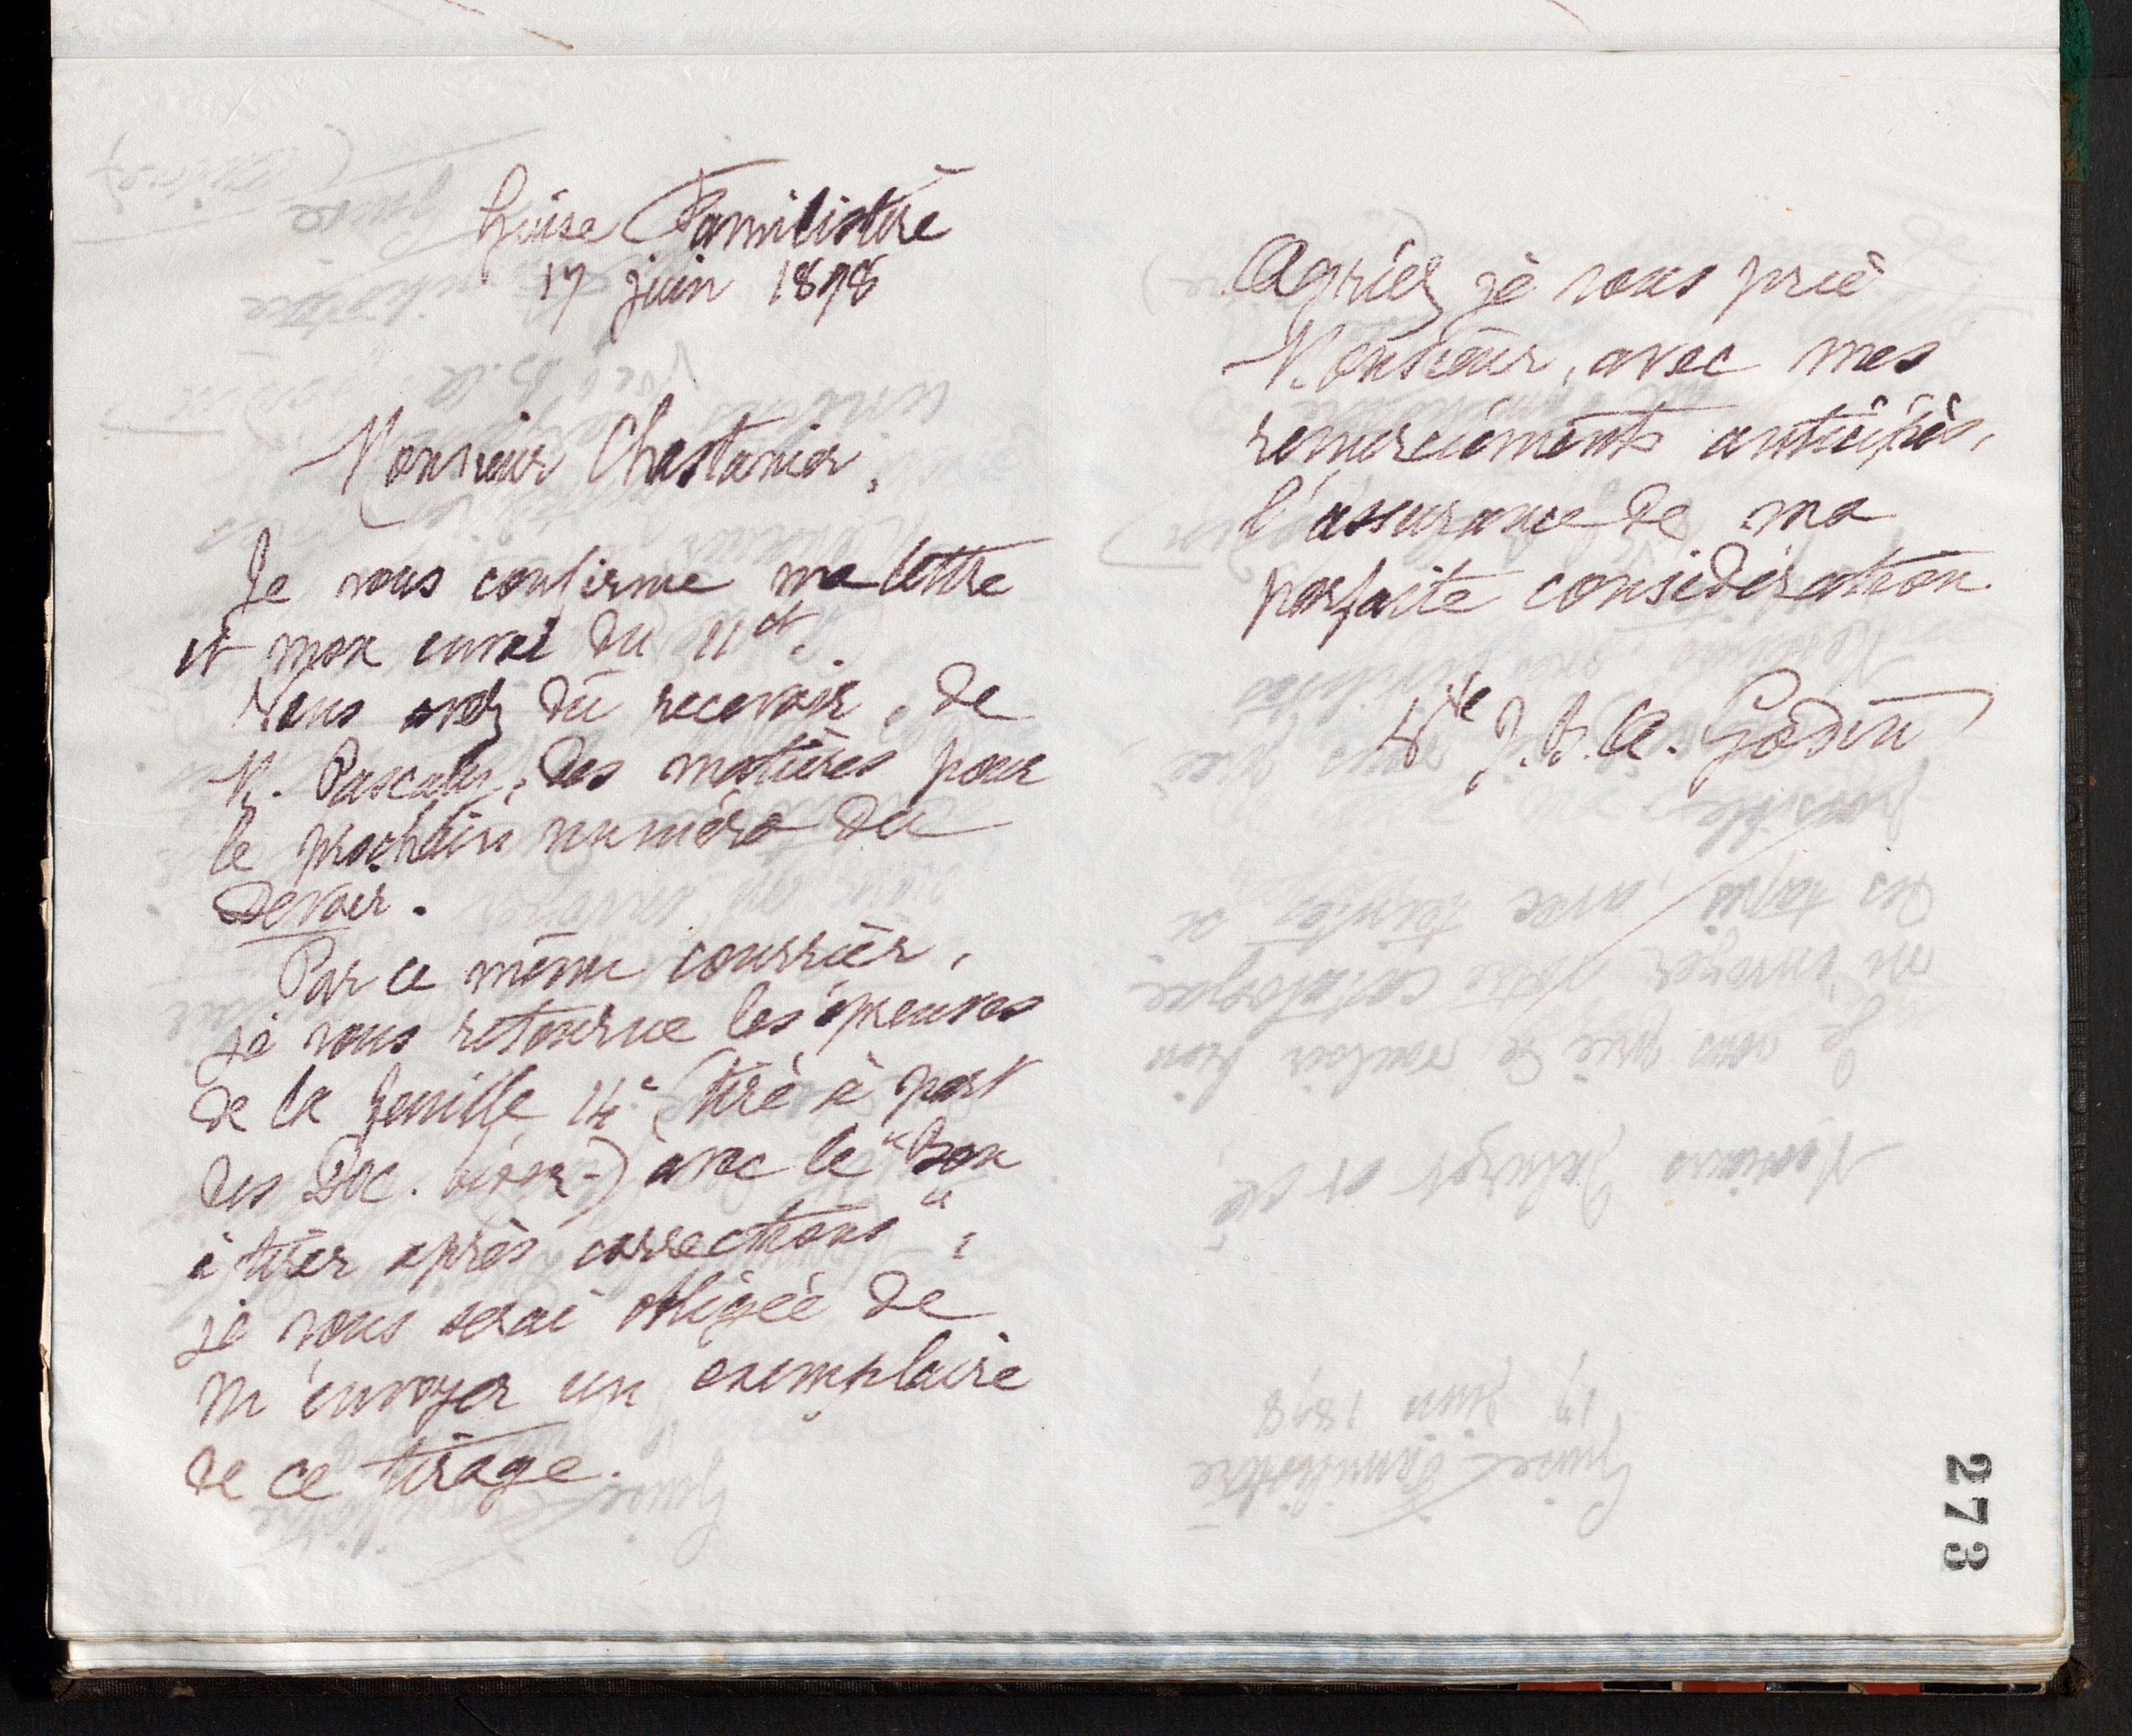 Guise Familistère
17 juin 1898
Monsieur Chastanier,
Je vous confirme ma lettre
et mon envoi du 11 ct.
Vous avez dû recevoir, de
M. Pascaly, des matières pour
le prochain numéro du
Devoir.
Par ce même courrier,
je vous retourne les épreuves
de la feuille 14e (tiré à part
des Doc. biog.) avec le "bon
à tirer après corrections";
je vous serai obligée de
m'envoyer un exemplaire
de ce tirage.
Agréez je vous prie
Monsieur, avec mes
remerciements anticipés,
l'assurance de ma
parfaite considération.
Vve J. B. A. Godin
273